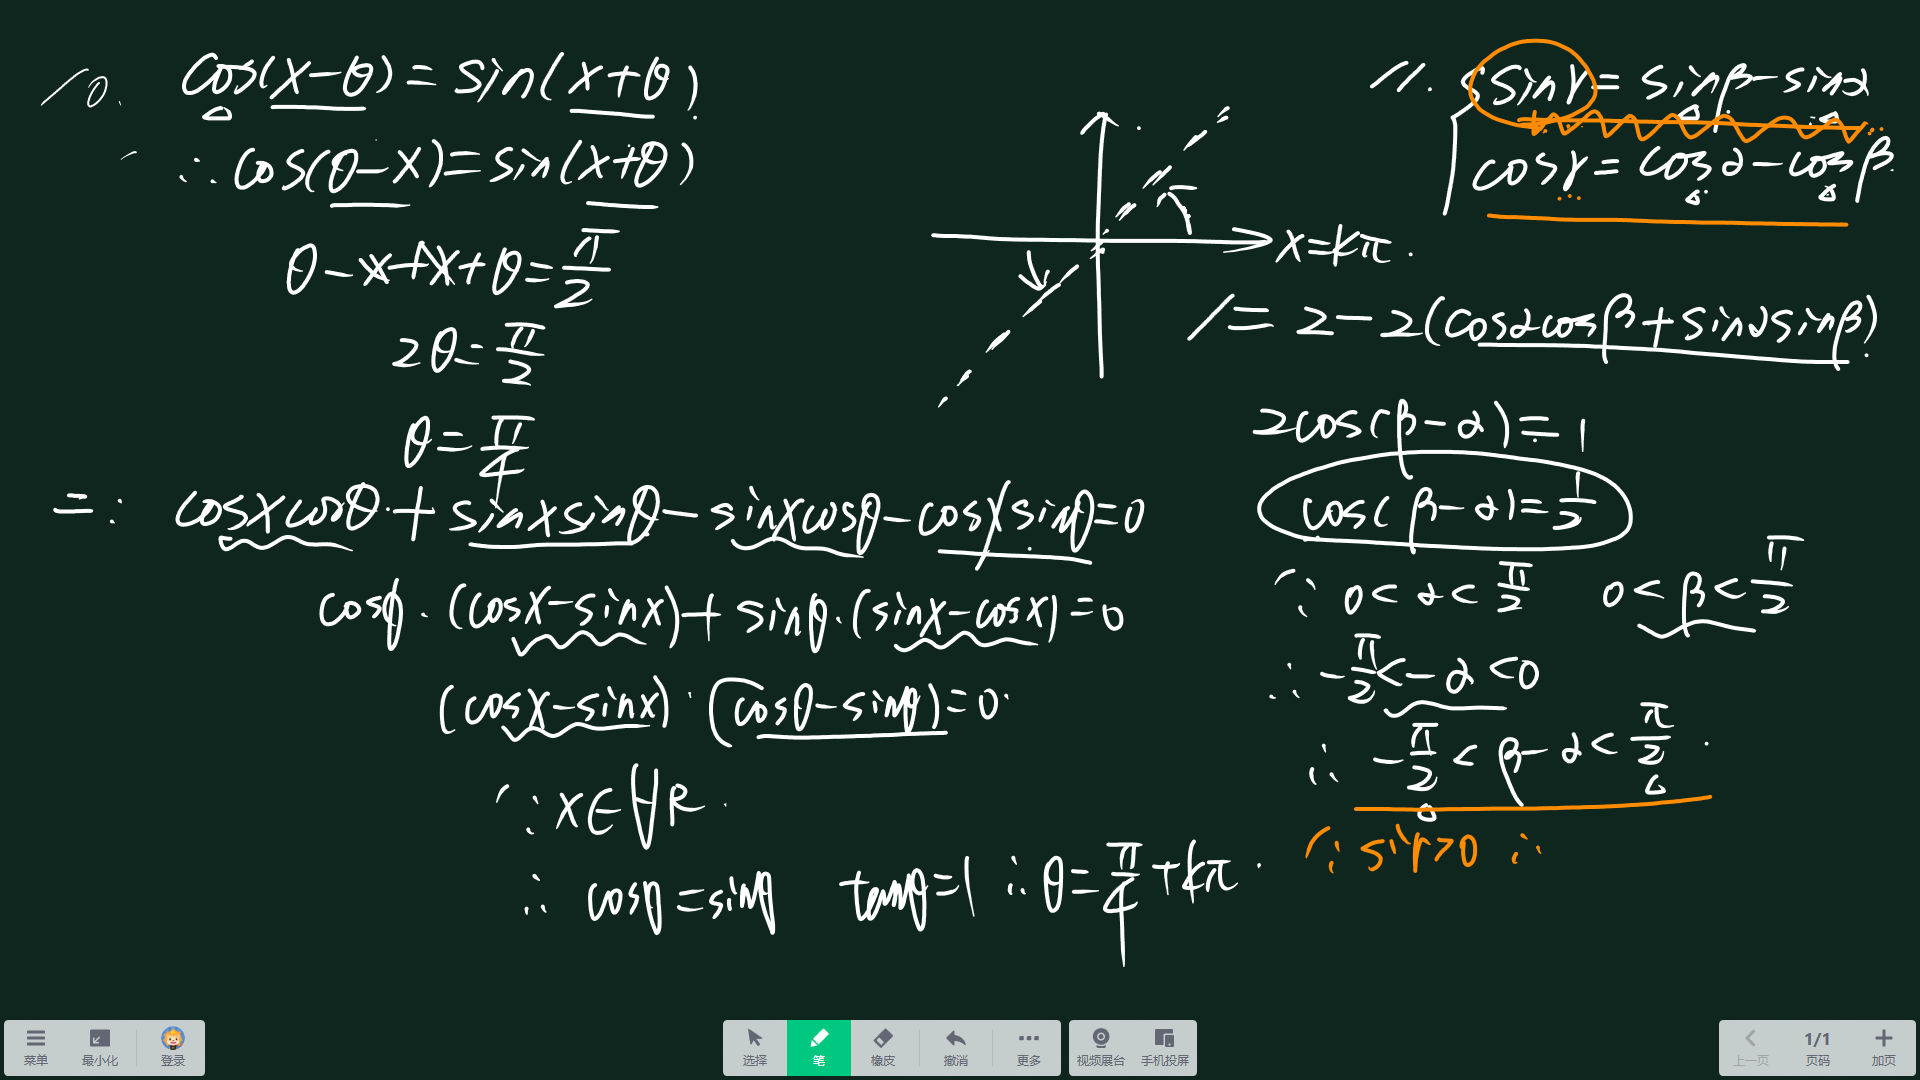 10. cos(x-θ)=sin(x+θ)
∴ cos(θ-x)=sin(x+θ)
θ-x+x+θ=π/2
2θ=π/2
θ=π/4
二: cosxcosθ+sinxsinθ-sinxcosθ-cosxsinθ=0
cosθ·(cosx-sinx)+sinθ·(sinx-cosx)=0
(cosx-sinx)·(cosθ-sinθ)=0
∵ x∈∀R
∴ cosθ=sinθ tanθ=1 ∴ θ=π/4+kπ
x=kπ
11. sinγ=sinβ-sinα
cosγ=cosα-cosβ
1=2-2(cosαcosβ+sinαsinβ)
2cos(β-α)=1
cos(β-α)=1/2
∵ 0<α<π/2 0<β<π/2
∴ -π/2<-α<0
∴ -π/2<β-α<π/2
∵ sinr>0 ∴
菜单 最小化 登录
选择 笔 橡皮 撤消 更多
视频展台 手机投屏
上一页 1/1 页码 加页